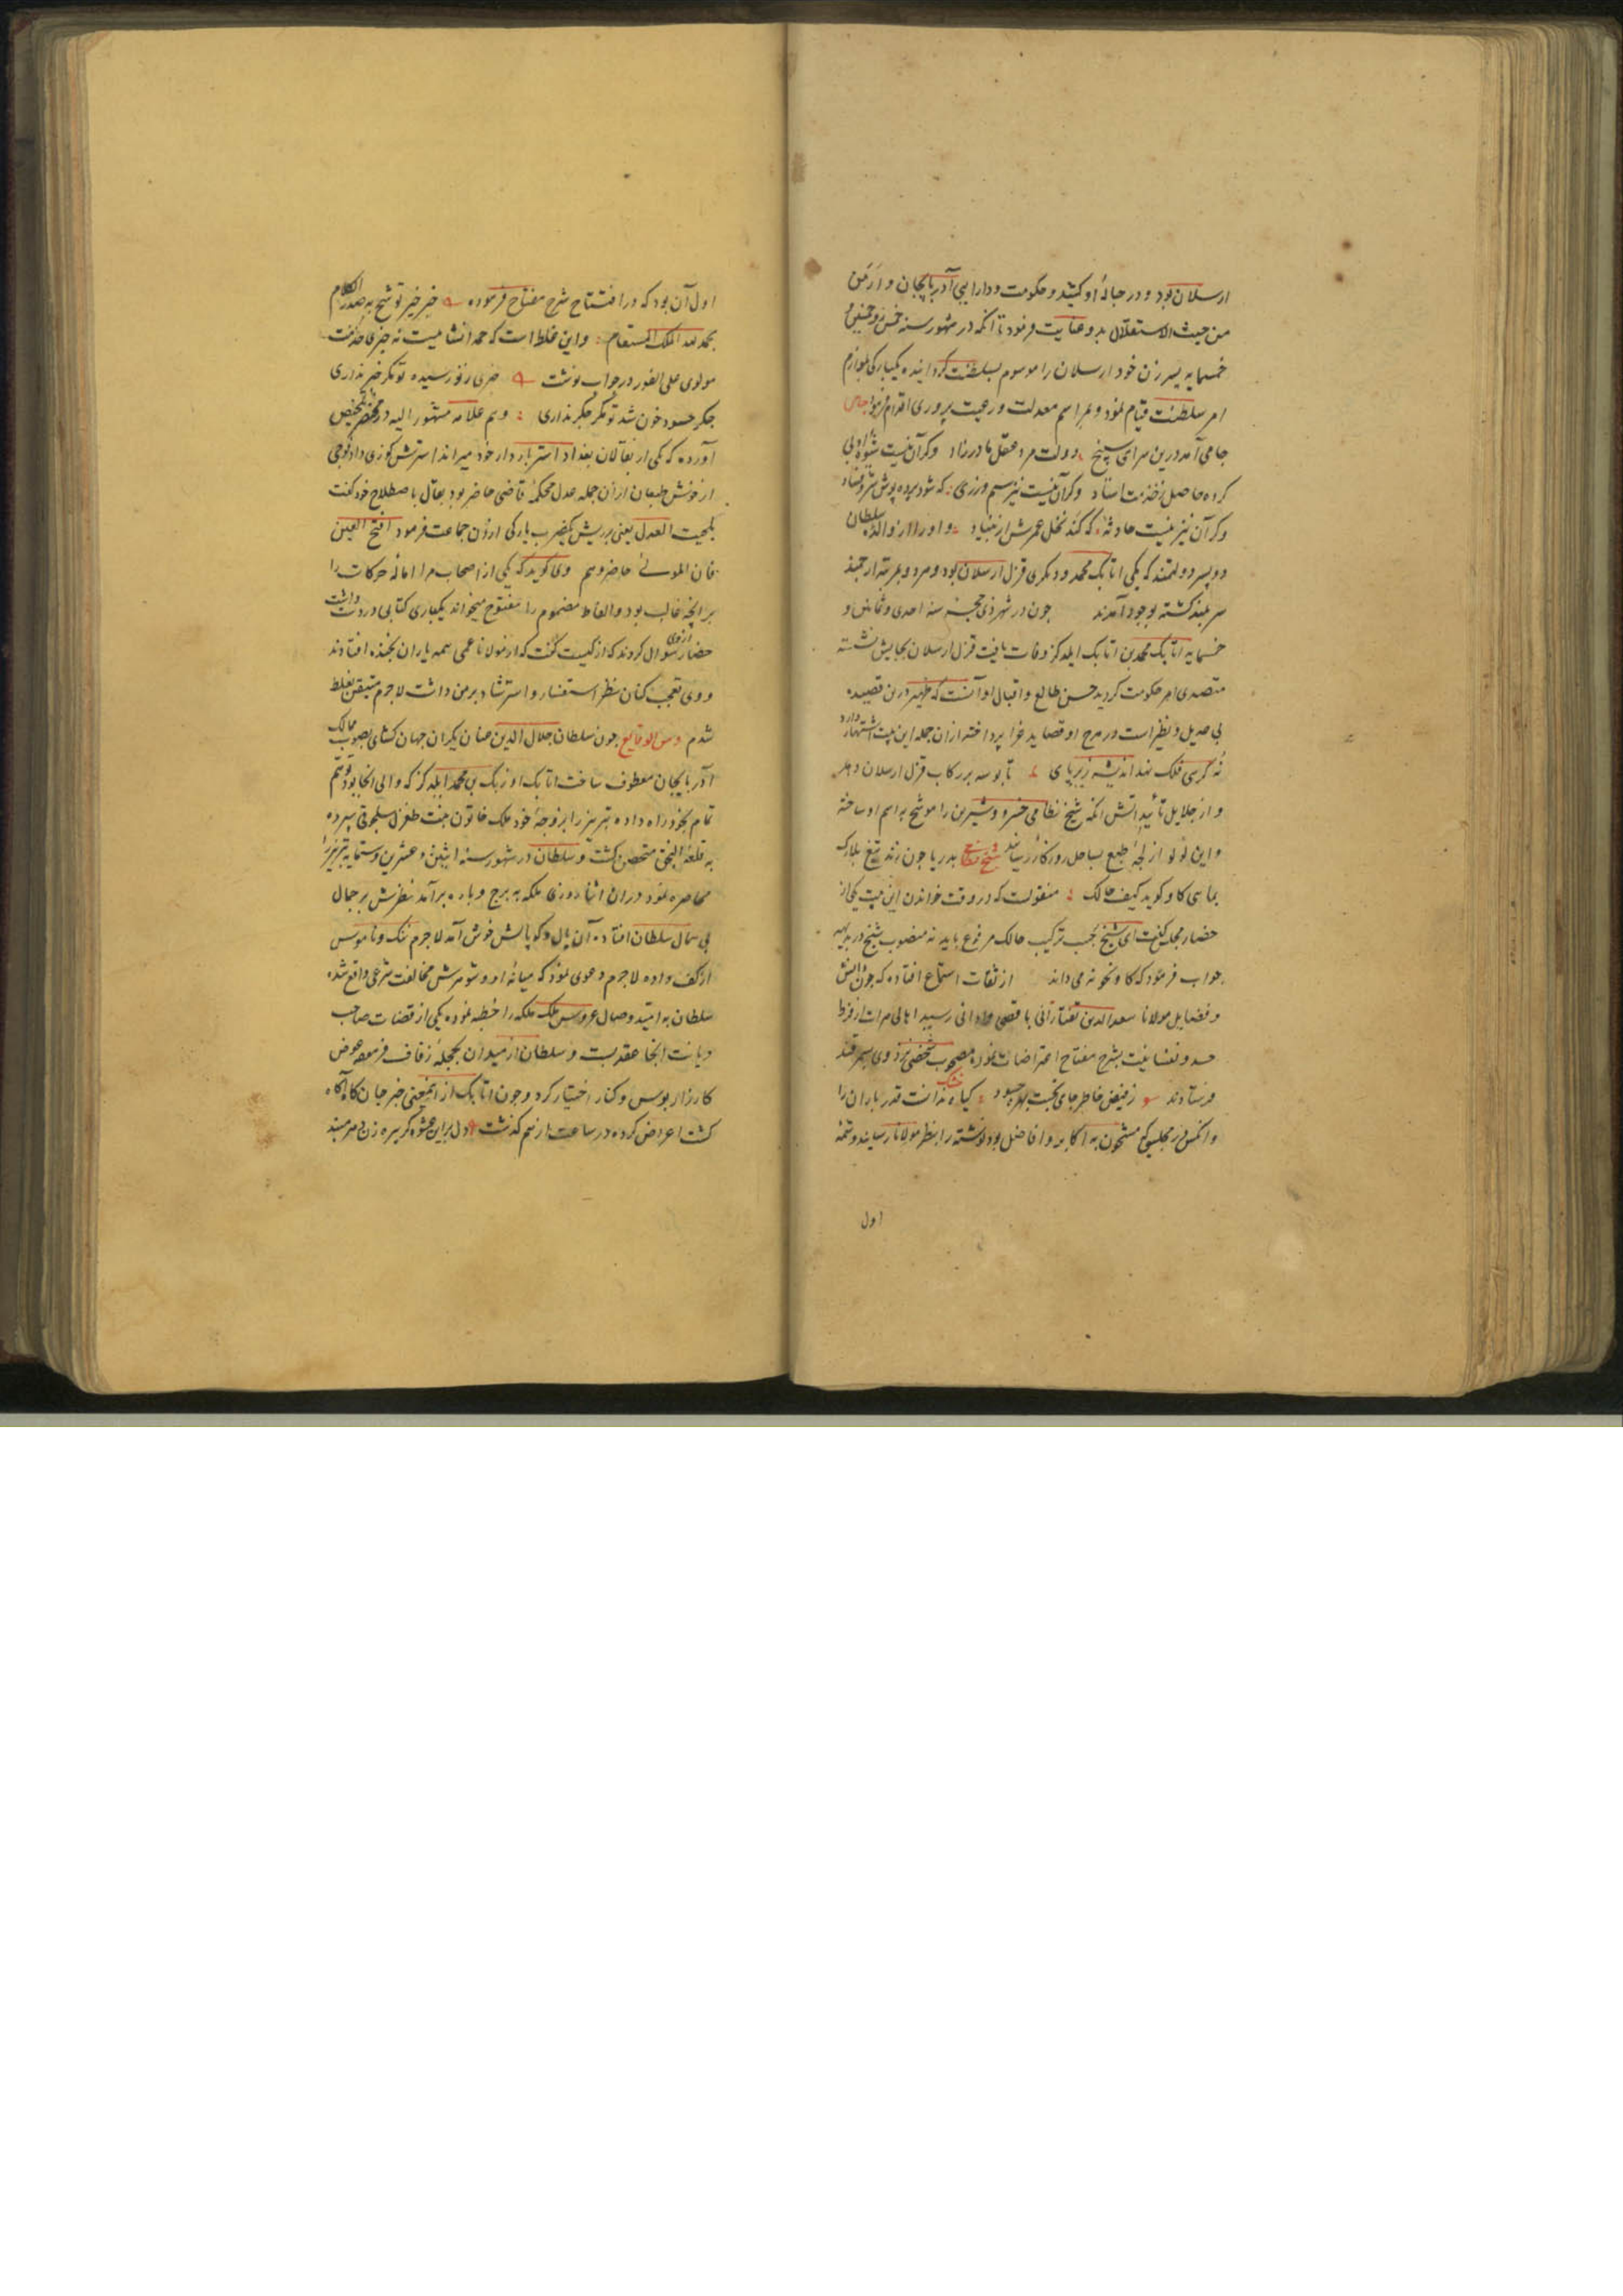 ارسلان بود و در حبالهٔ او کشید و حکومت و دارایی آذربایجان و ارمن
من حیث الاستقلال بدو عنایت فرمود تا آنکه در شهور سنه خمس و خمسین و
خمسمایه پسر زن خود ارسلان را موسوم بسلطنت کردانیده یکبارکی بلوازم
امر سلطنت قیام نمود و بمراسم معدلت و رعیت پروری اقدام فرمود جامی
جامی آمد درین سرای سپنج دولت مرد عقل مادرزاد وکر آن نیست شیوهٔ ادبی
کرده حاصل ز خدمت استاد وکر آن نیست نیز سیم و زری که شود پرده پوش شر و فساد
وکر آن نیز نیست حادثهٔ که کند نخل عمرش از بنیاد و او را از والدهٔ سلطان
دو پسر دولتمند که یکی اتابک محمد و دیکری قزل ارسلان بود و هر دو بمرتبه ارجمند
سربلند کشته بوجود آمدند جون در شهر ذی حجه سنه احدی و ثمانین و
خمسمایه اتابک محمد بن اتابک ایلدکز وفات یافت قزل ارسلان بجایش نشسته
متصدی امر حکومت کردید حسن طالع و اقبال او آنست که ظهیر درین قصیده
بی عدیل و نظیر است در مدح او قصاید غرا پرداخته از ان جمله این بیت اشتهار دارد
نه کرسی فلک نهد اندیشه زیر پای تا بوسه بر رکاب قزل ارسلان دهد
و از جلایل تأییداتش آنکه شیخ نظامی خسرو و شیرین را موشح به اسم او ساخته
و این لؤلو از لجهٔ طبع بساحل روزکار رسانید شیخ بدریا جون زند تیغ بلارک
بماهی کاو کوید کیف حالک منقولست که در وقت خواندن این بیت یکی از
حضار مجلس کفت ای شیخ بحسب ترکیب حالک مرفوع باید نه منصوب شیخ در بدیهه
جواب فرمود که کاو نحو نه می داند از ثقات استماع افتاده که جون دانش
و فضایل مولانا سعدالدین تفتازانی باقصی و ادانی رسید اهالی هرات از فرط
حسد و نفسانیت بشرح مفتاح اعتراضات نموده مصحوب شخصی نزد وی بسمرقند
فرستادند ز فیض خاطر جامی نجست بهره حسود کیاه خشک ندانست قدر باران را
و آنکس در مجلسی که مشحون به اکابر و افاضل بود نوشته را بنظر مولانا رسانید و تتمه
اول
اول آن بود که در افتتاح شرح مفتاح فرموده خیر خبر توشح به صدر الکلام
بحمد لله الملک المستقام و این غلط است که حمد انشا میست نه خبر
مولوی علی الفور در جواب نوشت خبری رنو رسیده تو مکر خبر نداری
جکر حسود خون شد تو مکر جکر نداری و هم علامه مشهور الیه در مختصر تلخیص
آورده که یکی از بغالان بغداد استر باردار خود میراند استرش کوزی داد فوجی
از خوش طبعان از ان جمله عدل محکمهٔ قاضی حاضر بود بغال باصطلاح خود کفت
بلحیت العدل یعنی بر ریش یکی از ان جماعت فرمود افتح العین
فان المولی حاضر و هم وی کوید که یکی از اصحاب مرا اماله حرکات را
بر لهجه غالب بود و الفاظ مضموم را مفتوح میخواند یکباری کتابی در دست داشت
حضار از وی سوال کردند که از کیست کفت که از مولانا عمر همه یاران بخنده افتادند
و وی تعجب کنان نظر استفسار و استرشاد بر من داشت لاجرم متیقن بغلط
شدم و من الوقایع جون سلطان جلال الدین عنان یکران جهان کشای بصوب ممالک
آذربایجان معطوف ساخت اتابک اوزبک بن محمد ایلدکز که والی آنجا بود وهم
تمام بخود راه داده تبریز را بزوجهٔ خود ملک خاتون بنت طغرل سلجوقی سپرده
به قلعهٔ النجق متحصن کشت و سلطان در شهور سنه اثنین و عشرین و ستمایه تبریز را
محاصره نمود در ان اثنا روزی ملکه به برج و باره برآمد نظرش بر جمال
بی مثال سلطان افتاد آن یال و کوپالش خوش آمد لاجرم ننک و ناموس
از کف داده لاجرم دعوی نمود که میانهٔ او و شوهرش مخالفت شرعی واقع شده
سلطان به امید وصال عروس ملک ملکه را خطبه نموده یکی از قضات صاحب
دیانت آنجا عقد بست و سلطان از میدان بحجلهٔ زفاف فرمود عوض
کارزار بوس و کنار اختیار کرد و جون اتابک از اینمعنی خبر جان کاه آکاه
کشت اعراض کرده در ساعت از هم کذشت دل برین عشوه کر پیره زن دهر مبند